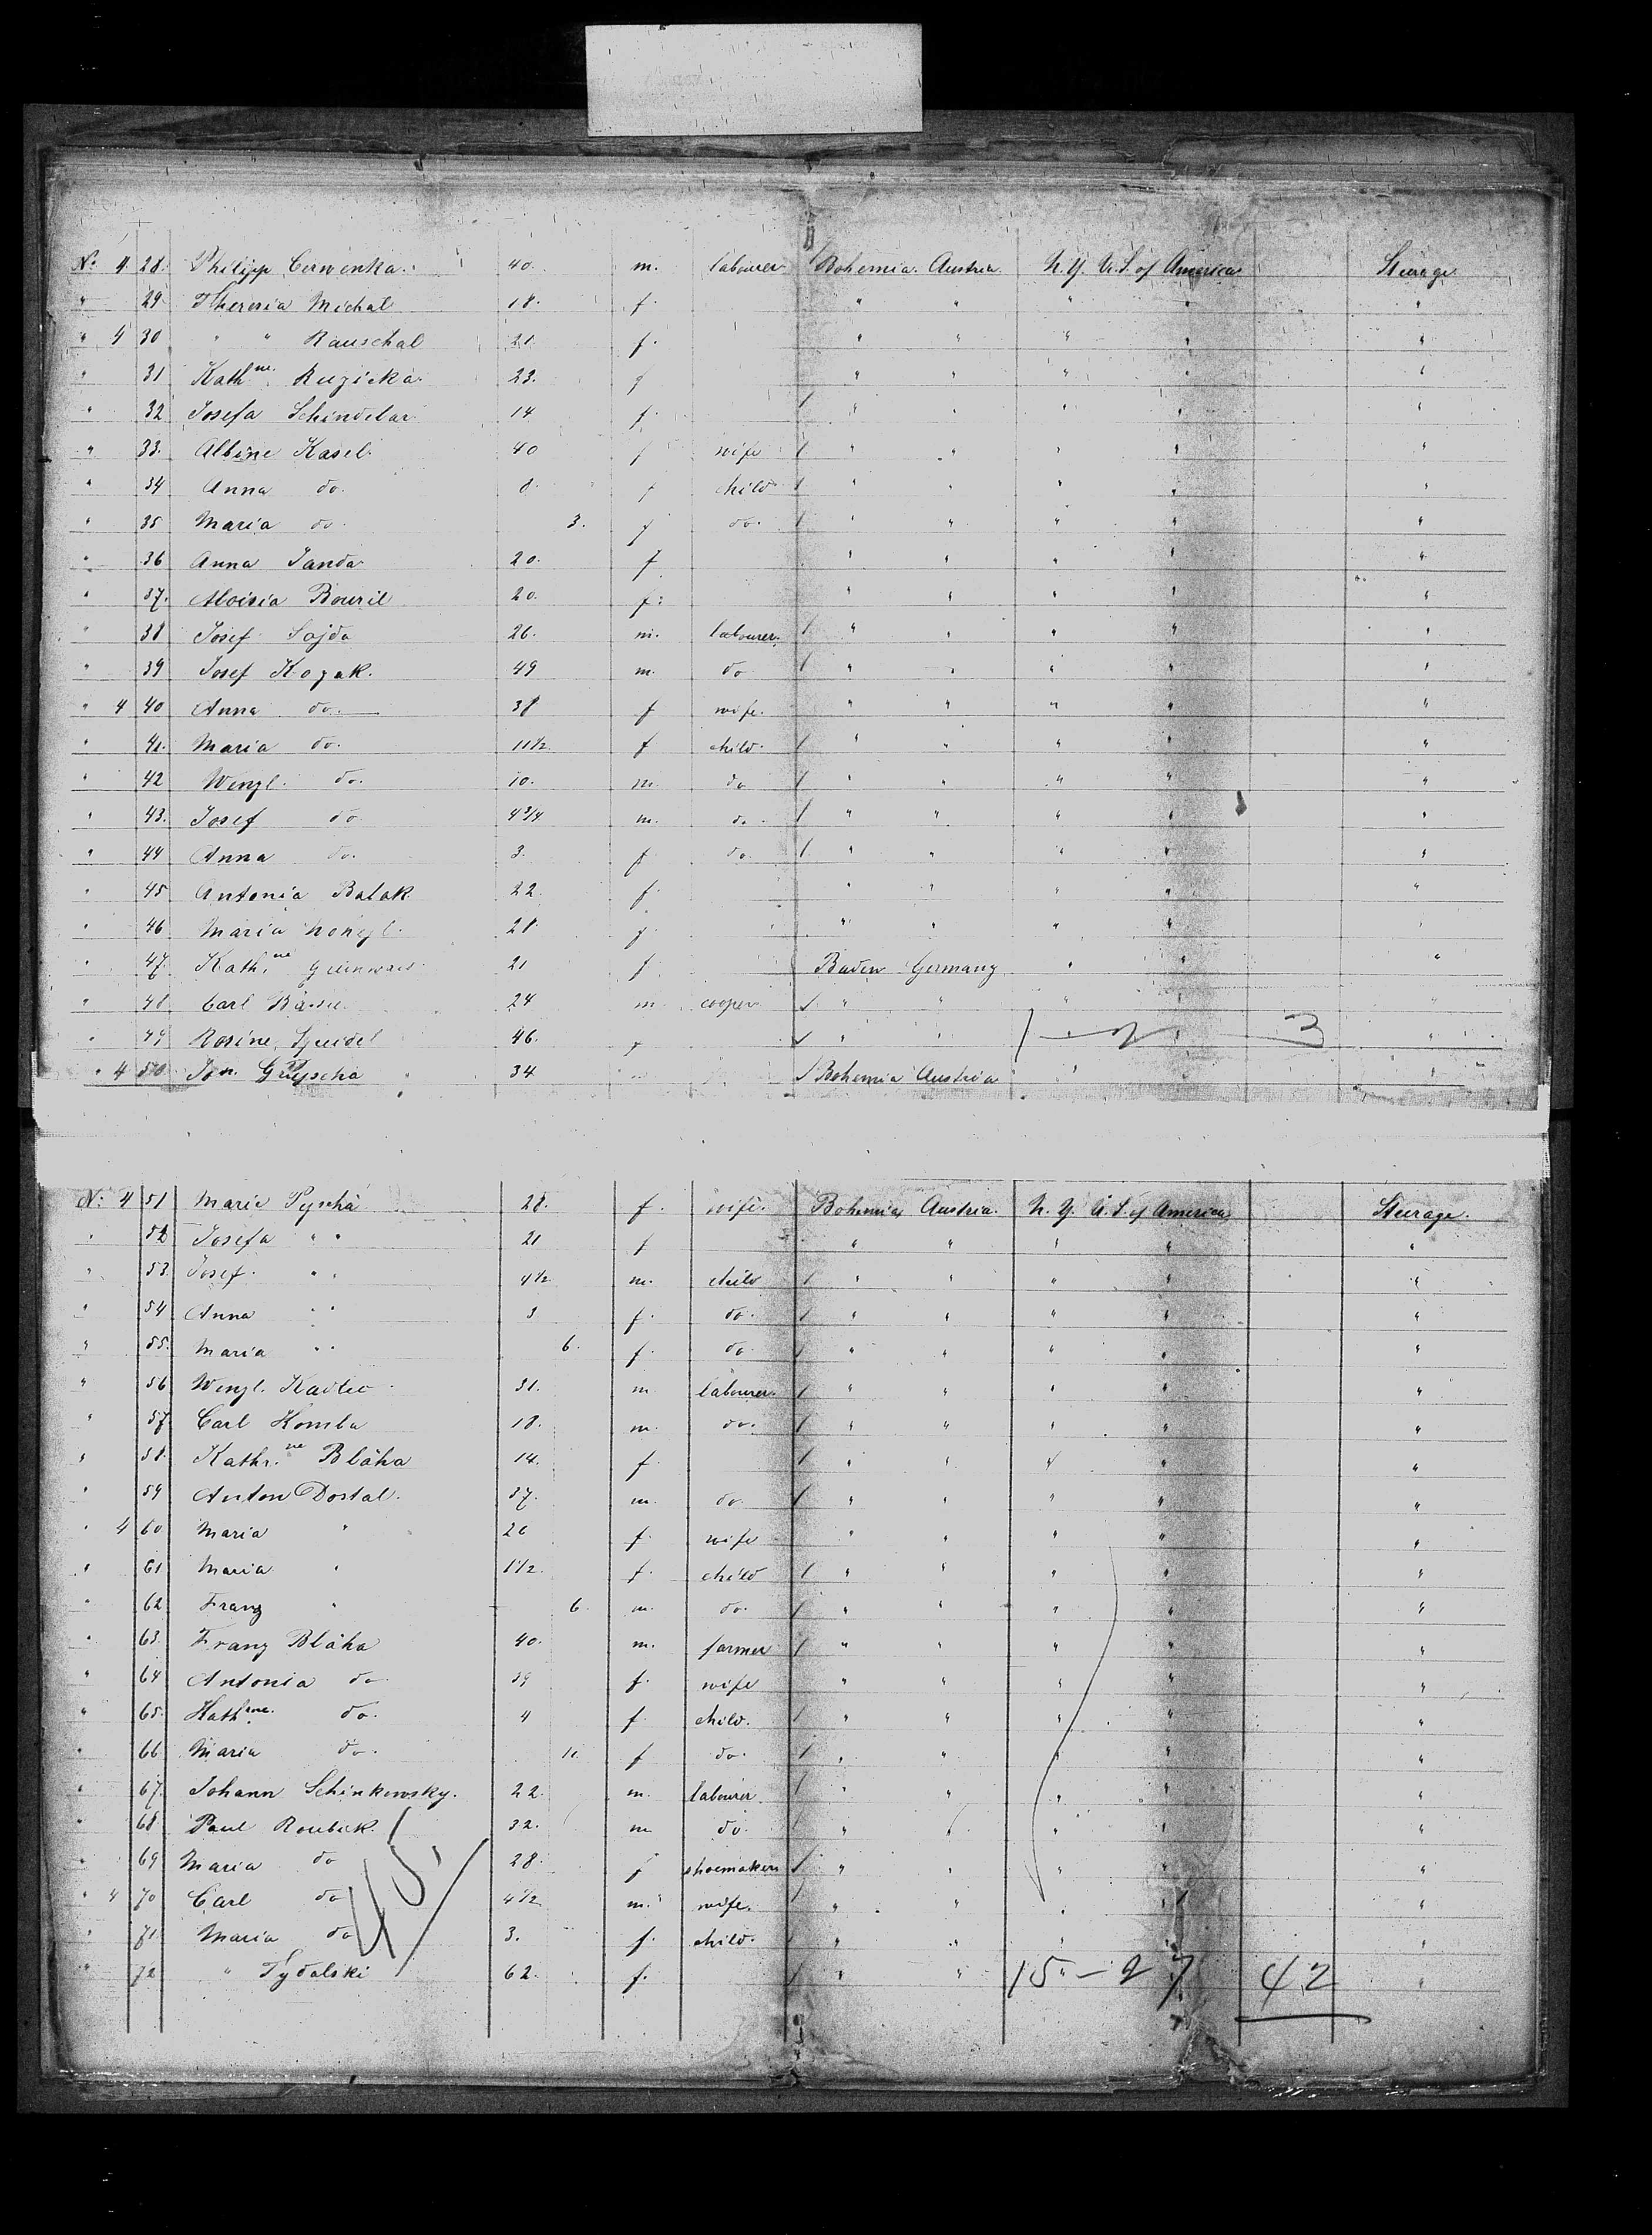 No. 4 28. Philipp Cerwenka. 40. m. labourer Bohemia. Austria N.Y. U.S. of America Steerage
" 29. Theresia Michal 18. f. " " " " "
" 4 30 " " Rauschal 21. f. " " " " "
" 31 Kathne. Ruzicka. 23. f " " " " "
" 32 Josefa Schindelar 14 f. / " " " " "
" 33. Albine Kasel. 40 f wife / " " " " "
" 34 Anna do. 8. f child / " " " " "
" 35 Maria do. 3. f do. / " " " " "
" 36 Anna Janda 20. f " " " " "
" 37. Aloisia Bouril 20. f. " " " " "
" 38 Josef Sojda 26. m. labourer. / " " " " "
" 39 Josef Kozak. 49 m. do / " " " " "
" 4 40 Anna do. 38 f wife. " " " " "
" 41. Maria do. 11 1/2 f child. / " " " " "
" 42 Wenzl. do. 10. m. do / " " " " "
" 43. Josef do 4 3/4 m. do. / " " " " "
" 44 Anna do. 3. f. do / " " " " "
" 45 Antonia Balak. 22. f. " " " " "
" 46 Maria 28. f. " " " " "
" 47. Kath.ne 21 f Baden Germany " " "
" 48 Carl 24 m. cooper / " " " " "
" 49 Rosine 46. f / " " 1 - 2 3 "
" 4 50 34 / Bohemia Austria " "
No. 4 51 Marie Pyscha 28. f. wife. Bohemia Austria. N.Y. U.S. of America Steerage.
" 52 Josefa " " 21 f " " " " "
" 53. Josef. " " 4 1/2 m. child / " " " " "
" 54 Anna " " 3 f. do. / " " " " "
" 55. Maria " " 6. f. do / " " " " "
" 56 Wenzl. 31. m labourer. / " " " " "
" 57 Carl Homla 18. m. do. / " " " " "
" 58. Kathr.ne Bláha 14. f. / " " " " "
" 59 Anton Dostal. 37. m. do / " " " " "
" 4 60 Maria " 26 f. wife " " " " "
" 61 Maria " 1 1/2 f. child / " " " " "
" 62 Franz " 6. m. do. / " " " " "
" 63. Franz Bláha 40. m. farmer / " " " " "
" 64 Antonia do 39 f. wife " " " " "
" 65. Kathne. do. 4 f. child. / " " " " "
" 66 Maria do. f do. / " " " " "
" 67. Johann Schinkowsky. 22. m. labourer / " " " " "
" 68 Paul Roubick. 32. m do. / " " " " "
" 69 Maria do 28. f shoemaker / " " " " "
" 4 70 Carl do 4 1/2 m. wife. / " " " " "
" 71. Maria do 3. f. child. / " " " " "
" 72 " Tydalski 62. f. / " " 15 - 27 42 "
45/